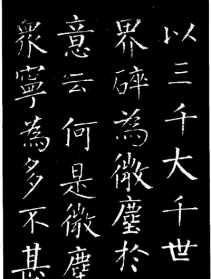 以三千大千世
界碎為微塵於
意云何是微塵
衆寧為多不甚